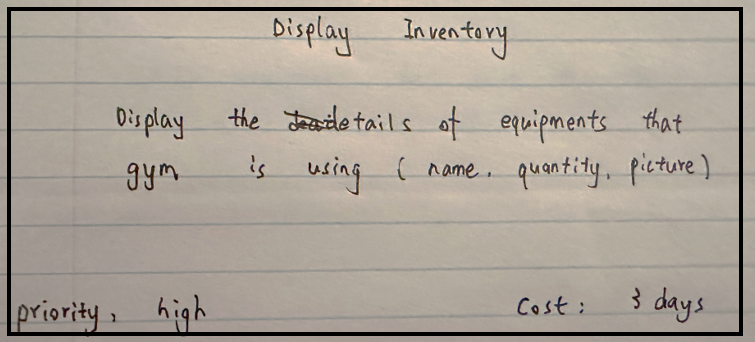 Display Inventory
Display the details of equipments that
gym is using ( name, quantity, picture )
priority, high Cost: 3 days